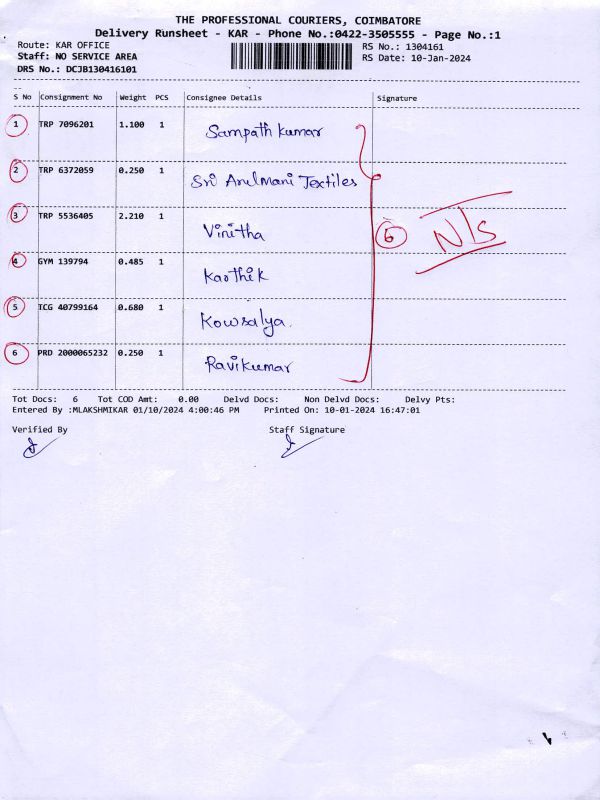 THE PROFESSIONAL COURIERS, COIMBATORE
Delivery Runsheet - KAR - Phone No.:0422-3505555 - Page No.:1
Route: KAR OFFICE RS No.: 1304161
Staff: NO SERVICE AREA RS Date: 10-Jan-2024
DRS No.: DCJB130416101
S No Consignment No Weight PCS Consignee Details Signature
1 TRP 7096201 1.100 1 Sampath kumar
2 TRP 6372059 0.250 1 Sri Arulmani Textiles
3 TRP 5536405 2.210 1 Vinitha
6 N/S
4 GYM 139794 0.485 1 Karthik
5 TCG 40799164 0.680 1 Kowsalya.
6 PRD 2000065232 0.250 1 Ravikumar
Tot Docs: 6 Tot COD Amt: 0.00 Delvd Docs: Non Delvd Docs: Delvy Pts:
Entered By :MLAKSHMIKAR 01/10/2024 4:00:46 PM Printed On: 10-01-2024 16:47:01
Verified By Staff Signature